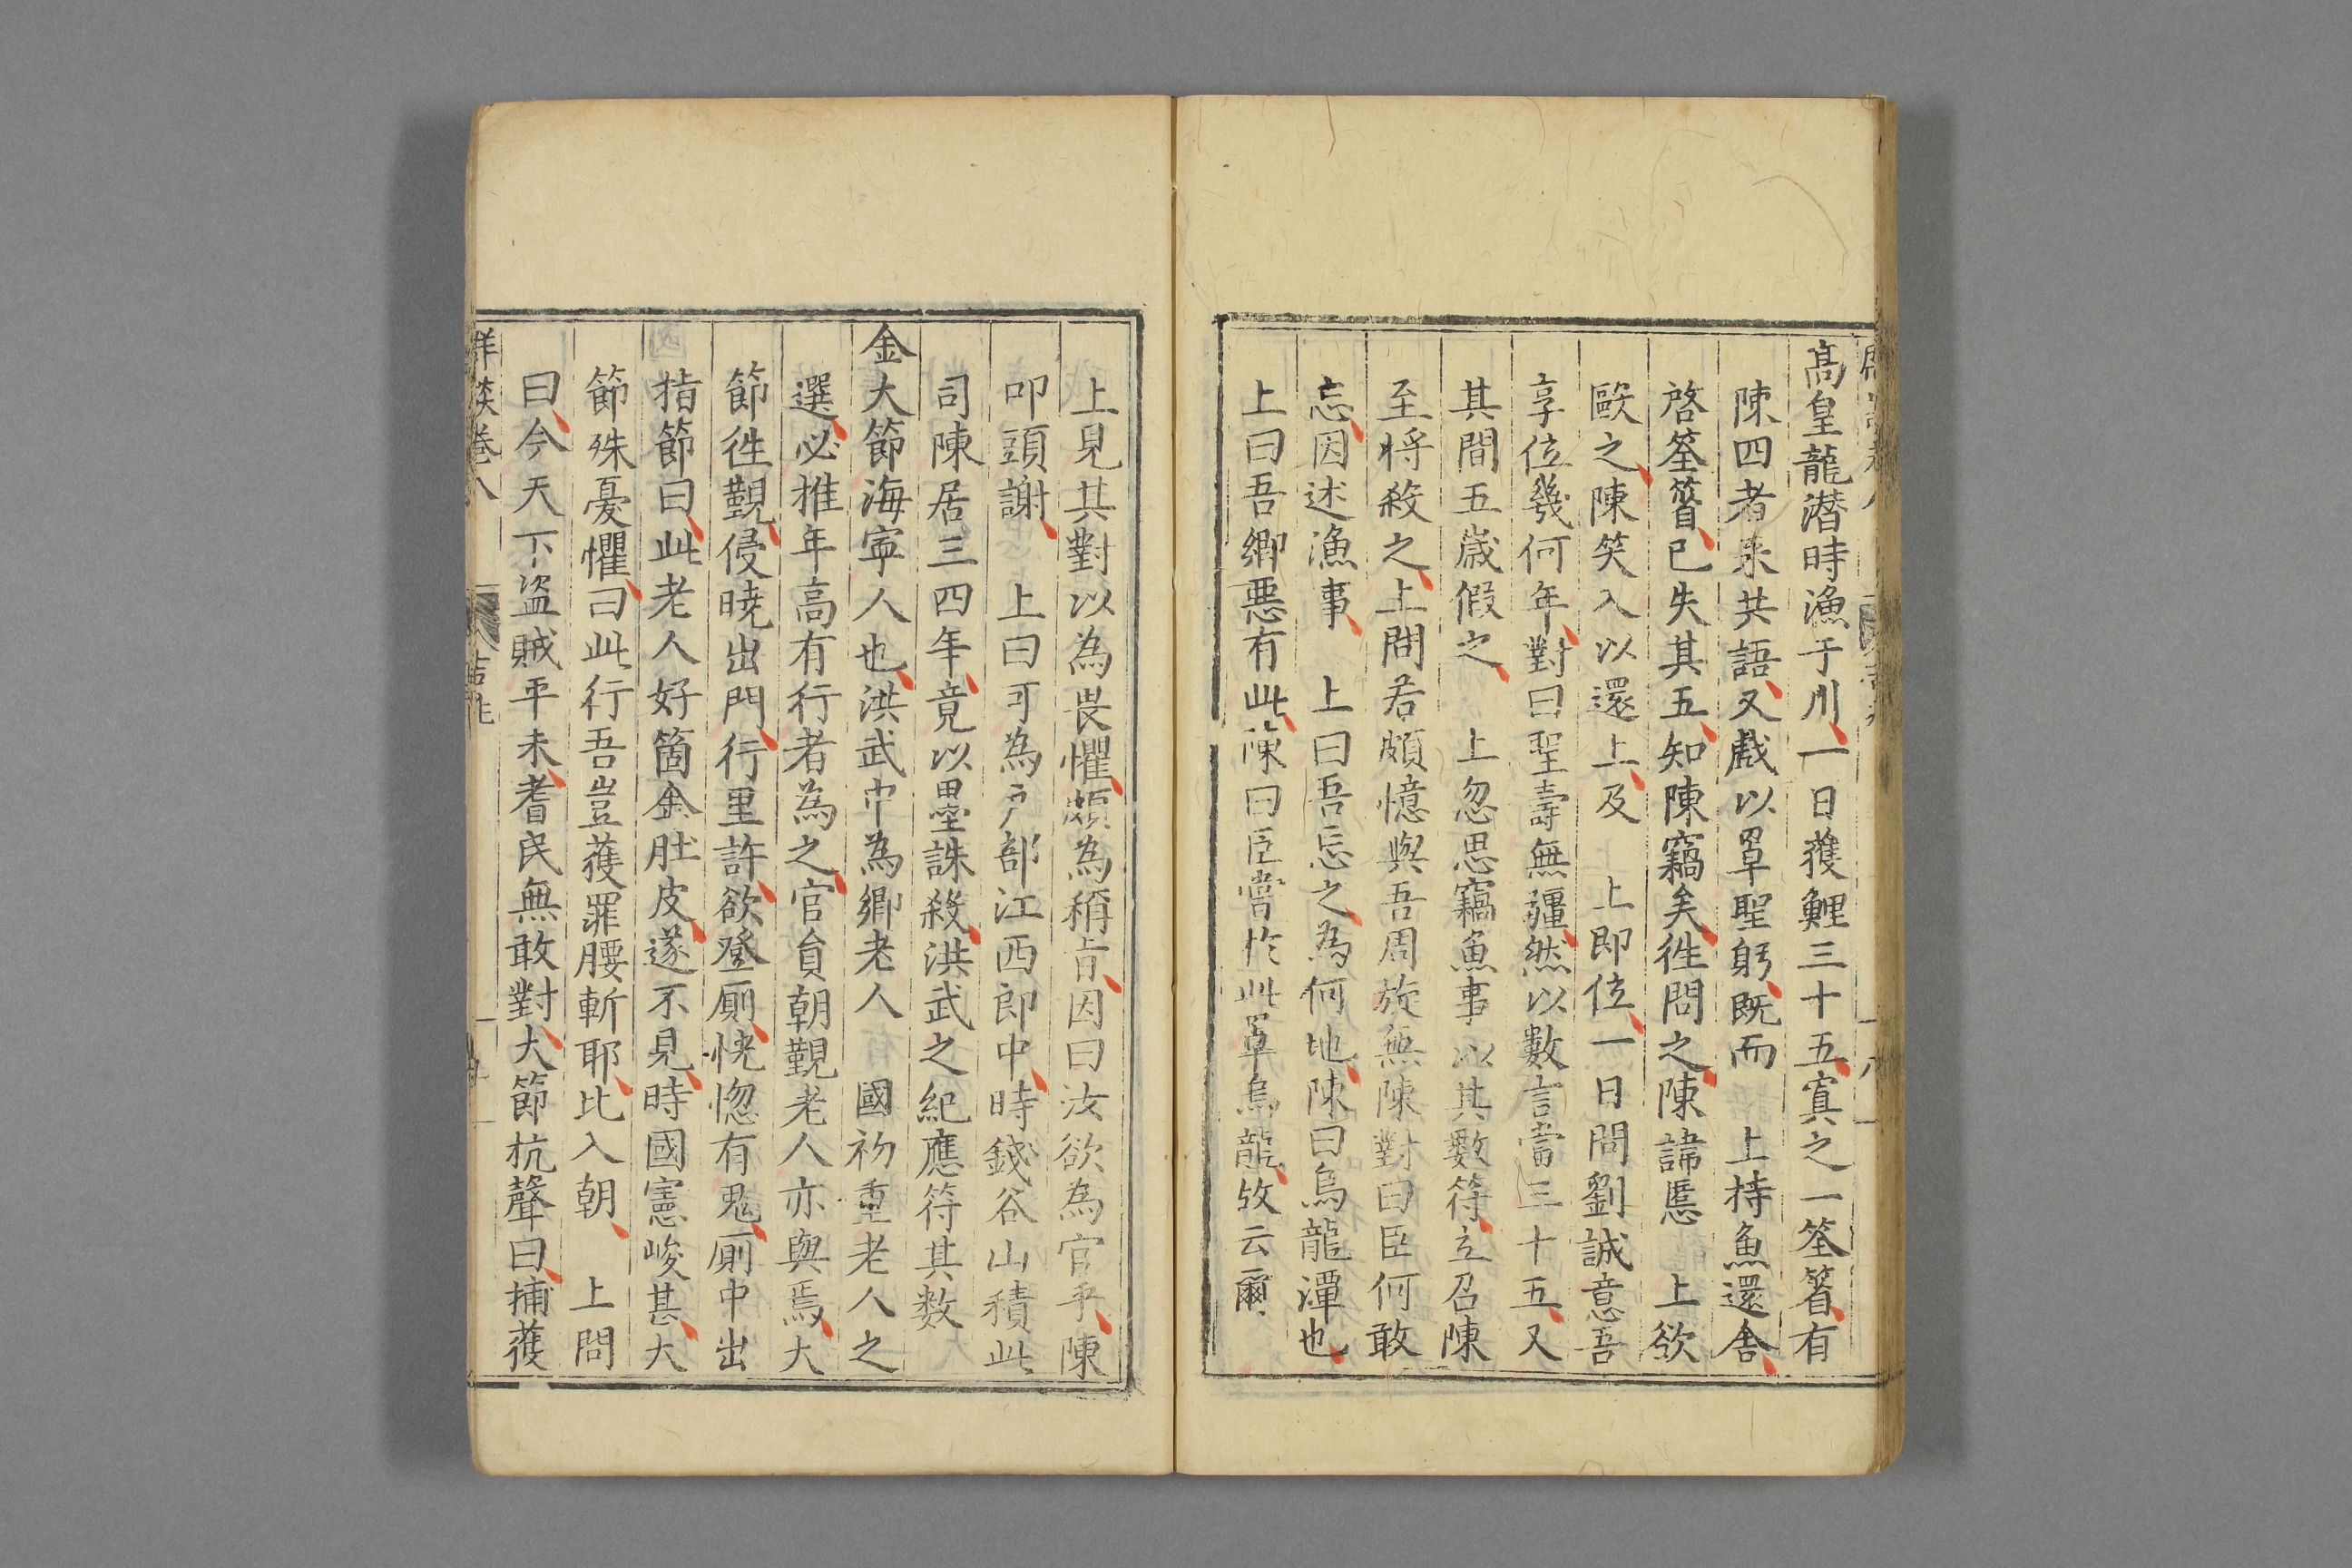 高皇龍潛時漁于川一日獲鯉三十五寘之一筌箵有
陳四者来共語又戲以罩聖躬既而　上持魚還舍
啓筌箵已失其五知陳竊矣徃問之陳諱慝　上欲
毆之陳笑入以還上及　上即位一日問劉誠意吾
享位幾何年對曰聖壽無疆然以數言當三十五又
其間五嵗假之　上忽思竊魚事以其數符立召陳
至将殺之上問若頗憶與吾周旋無陳對曰臣何敢
忘因述漁事　上曰吾忘之為何地陳曰烏龍潭也
上曰吾郷惡有此陳曰臣嘗作此罩烏龍故云爾
上見其對以為畏懼頗為稱旨因曰汝欲為官乎陳
叩頭謝　上曰可為户部江西郎中時錢谷山積此
司陳居三四年竟以墨誅殺洪武之紀應符其数
金大節海寧人也洪武中為郷老人　國初重老人之
選必推年高有行者為之官貟朝覲老人亦與焉大
節徃覲侵曉出門行里許欲登厠恍惚有鬼厠中出
指節曰此老人好箇金肚皮遂不見時國憲峻甚大
節殊憂懼曰此行吾豈獲罪腰斬耶比入朝　上問
曰今天下盜賊平未耆民無敢對大節抗聲曰捕獲